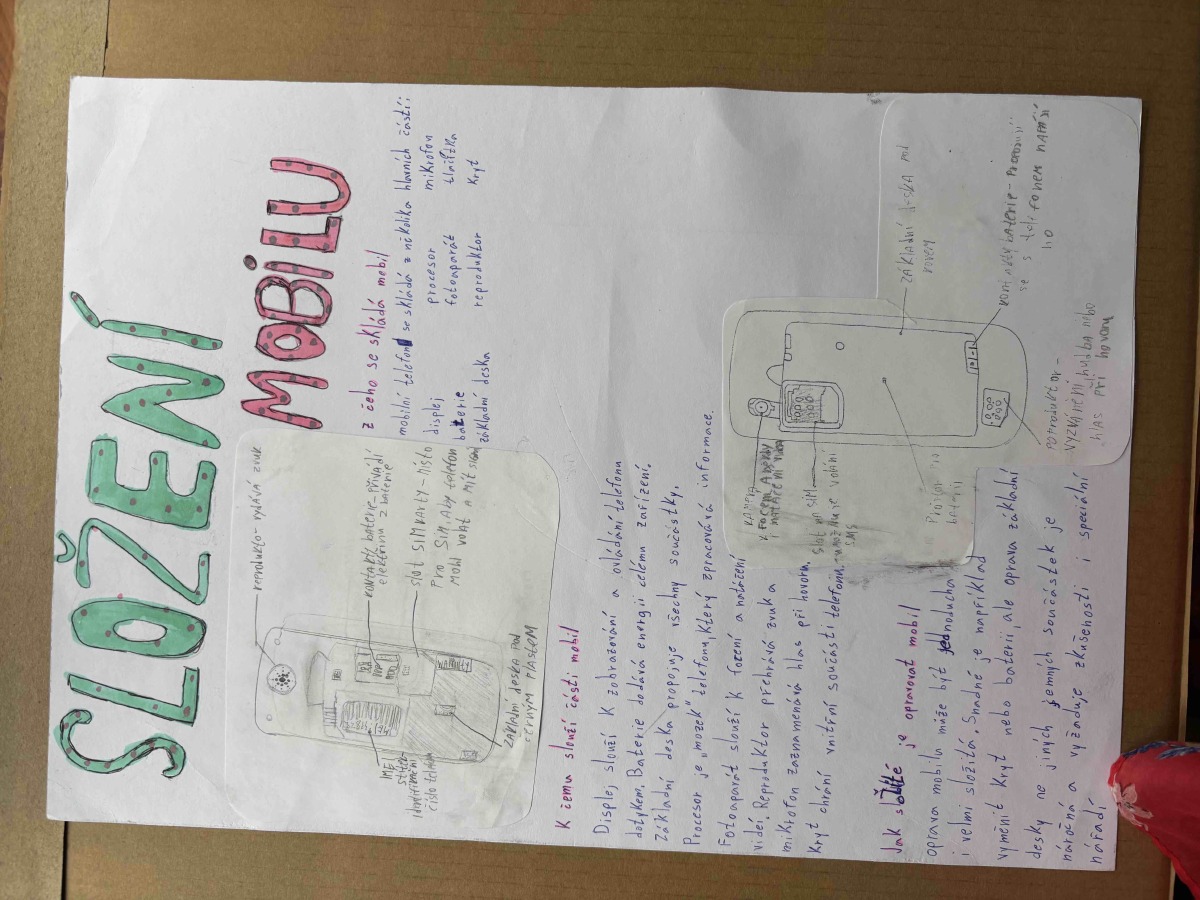 SLOŽENÍ
MOBILU
z čeho se skládá mobil
mobilní telefon se skládá z několika hlavních částí:
displej procesor mikrofon
baterie fotoaparát tlačítka
základní deska reproduktor kryt
reprodukto- vydává zvuk
kontakty baterie-přivádí
elektřinu z baterie
slot SIMKARTY-místo
Pro SIM. Aby telefon
mohl volat a mít
ZÁKLADNÍ DESKA POD
ČERNÝM PLASTEM
IMEI
číslo telefon
K čemu slouží části mobil
Displej slouží k zobrazování a ovládání telefonu
dotykem. Baterie dodává energii celému zařízení,
základní deska propojuje všechny součástky.
Procesor je „mozek" telefonu, který zpracovává informace.
Fotoaparát slouží k focení a natáčení
videí. Reproduktor přehrává zvuk a
mikrofon zaznamenává hlas při hovoru.
Kryt chrání vnitřní součásti telefonu.
KAMERA
slot na SIM
umožňuje volání
SMS
Prostor
baterii
ZÁKLADNÍ
kovem
KONTAKTY BATERIE-
se s telefonem
reproduktor-
VYZVÁNĚNÍ hudba nebo
hlas při hovoru
Jak složité je opravovat mobil
oprava mobilu může být jednoduchá
i velmi složitá. Snadné je například
vyměnit kryt nebo baterii, ale oprava základní
desky ne jiných jemných součástek je
náročná a vyžaduje zkušenosti i speciální
nářadí